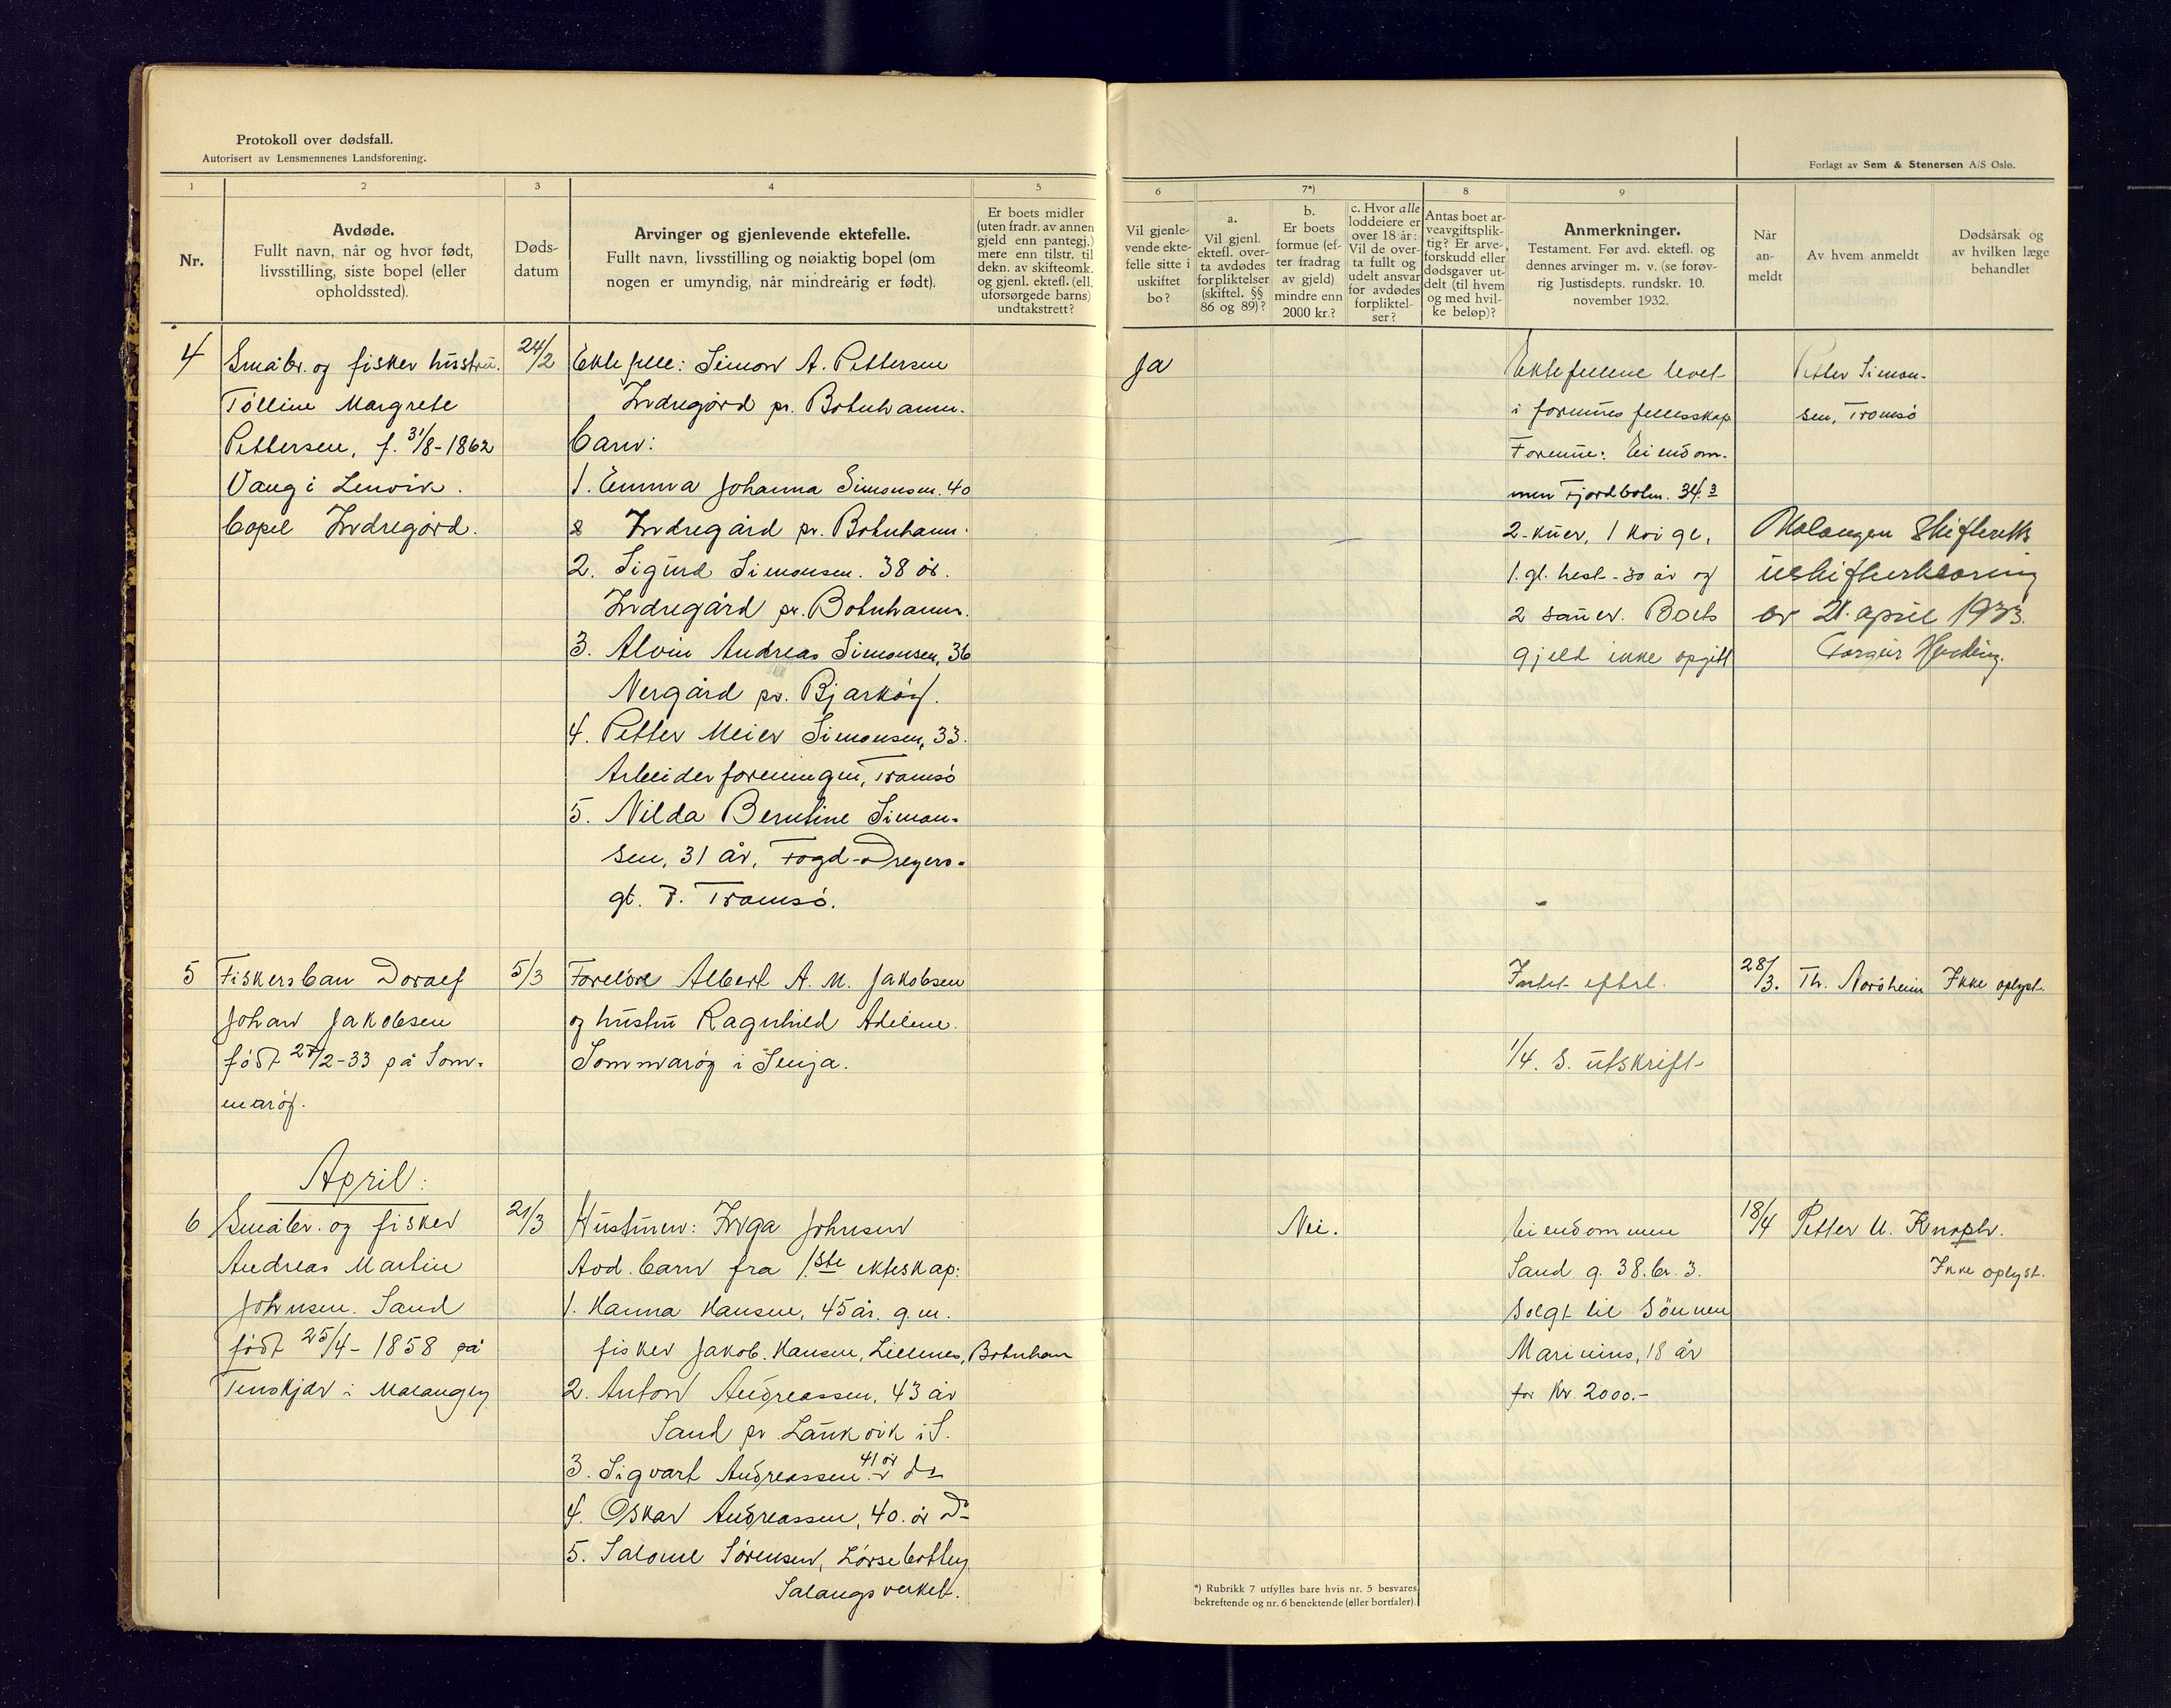 Protokoll over dødsfall.
Autorisert av Lensmennenes Landsforening.
1
2
3
4
5
Nr.
Avdøde.
Fullt navn, når og hvor født,
livsstilling, siste bopel (eller
opholdssted).
Døds-
datum
Arvinger og gjenlevende ektefelle.
Fullt navn, livsstilling og nøiaktig bopel (om
nogen er umyndig, når mindreårig er født).
Er boets midler
(uten fradr. av annen
gjeld enn pantegj.)
mere enn tilstr. til
dekn. av skifteomk.
og gjenl. ektefl. (ell.
uforsørgede barns)
undtakstrett?
4
Småbr. og fisker hustru.
Tolline Margrete
Pettersen, f. 31/8-1862
Vang i Lenvik.
bopel Indregård.
24/2
Ektefelle: Simon A. Pettersen
Indregård pr. Botnhamn.
barn:
1. Emma Johanna Simonsen. 40
Indregård pr. Botnhamn.
2. Sigurd Simonsen. 38 år.
Indregård pr. Botnhamn.
3. Alvin Andreas Simonsen, 36
Nergård pr. Bjarkøy.
4. Petter Meier Simonsen, 33.
Arbeiderforeningen, Tromsø
5. Nilda Berntine Simon-
sen, 31 år, Fogd-Dreyers-
gt. 7. Tromsø.
5
Fiskersbarn Doralf
Johan Jakobsen
født 27/2-33 på Som-
marøy.
5/3
Foreldre Albert A. M. Jakobsen
og hustru Ragnhild Adeline.
Sommarøy i Senja.
April:
6
Småbr. og fisker
Andreas Martin
Johnsen. Sand
født 25/4-1858 på
Tenskjær i Malangen
21/3
Hustruen: Inga Johnsen
Avd. barn fra 1.ste ekteskap:
1. Hanna Hansen, 45 år. g.m.
fisker Jakob. Hansen, Lillenes, Botnhamn
2. Anton Andreassen, 43 år
Sand pr. Laukvik i S.
3. Sigvart Andreassen 41 år do
4. Oskar Andreassen, 40. år Do
5. Salome Sørensen,
Salangsverket.
Forlagt av Sem & Stenersen A/S Oslo.
6
7*)
8
9
Vil gjenle-
vende ekte-
felle sitte i
uskiftet
bo?
a.
Vil gjenl.
ektefl. over-
ta avdødes
forpliktelser
(skiftel. §§
86 og 89)?
b.
Er boets
formue (ef-
ter fradrag
av gjeld)
mindre enn
2000 kr.?
c. Hvor alle
loddeiere er
over 18 år:
Vil de over-
ta fullt og
udelt ansvar
for avdødes
forpliktel-
ser?
Antas boet ar-
veavgiftsplik-
tig? Er arve-
forskudd eller
dødsgaver ut-
delt (til hvem
og med hvil-
ke beløp)?
Anmerkninger.
Testament. Før avd. ektefl. og
dennes arvinger m. v. (se forøv-
rig Justisdepts. rundskr. 10.
november 1932.
Når
an-
meldt
Av hvem anmeldt
Dødsårsak og
av hvilken læge
behandlet
Ja
Ektefellene levet
i formues fellesskap
Formue: Eiendom-
men Fjordbotn. 34.3
2-kuer, 1 kvige,
1. gl. hest-30 år og
2 sauer. Boets
gjeld ikke opgitt
Petter Simon-
sen, Tromsø
Malangen Skifteretts
uskifterklæring
av 21. april 1933.
Intet efterl.
1/4. s. utskrift
28/3.
Th. Nordheim
Ikke oplyst.
Nei.
Eiendommen
Sand g. 38. br. 3.
solgt til sønnen
Marinius, 18 år
for kr. 2000.-
18/4
Petter U. Knoph.
Ikke oplyst.
*) Rubrikk 7 utfylles bare hvis nr. 5 besvares
bekreftende og nr. 6 benektende (eller bortfaler).